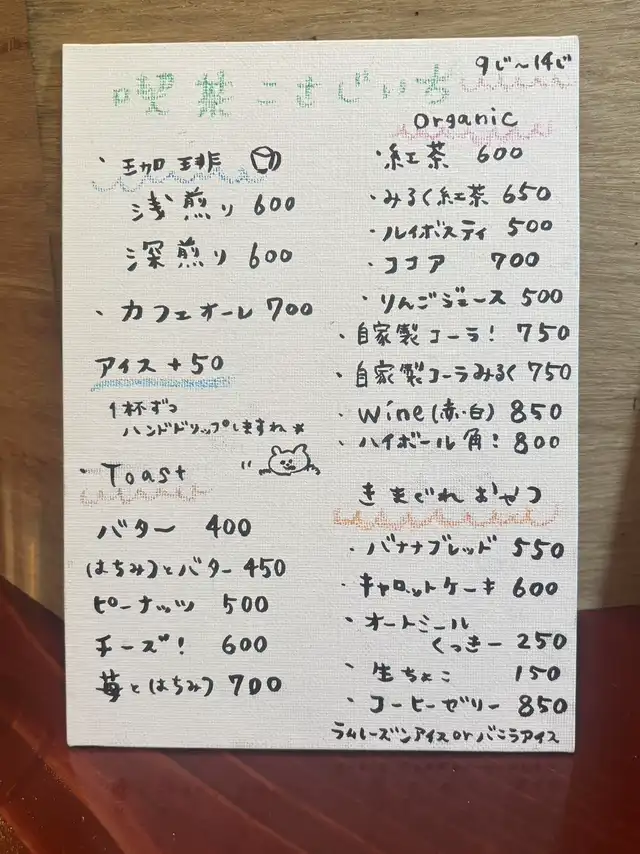 喫茶こさじいち
9じ〜14じ
・珈琲
浅煎り 600
深煎り 600
・カフェオーレ 700
アイス + 50
1杯ずつ
ハンドドリップしますね
・Toast
バター 400
はちみつとバター 450
ピーナッツ 500
チーズ! 600
苺とはちみつ 700
Organic
・紅茶 600
・みるく紅茶 650
・ルイボスティ 500
・ココア 700
・りんごジュース 500
・自家製コーラ! 750
・自家製コーラみるく 750
・wine(赤・白) 850
・ハイボール角! 800
きまぐれおやつ
・バナナブレッド 550
・キャロットケーキ 600
・オートミール
くっきー 250
・生ちょこ 150
・コーヒーゼリー 850
ラムレーズンアイスorバニラアイス